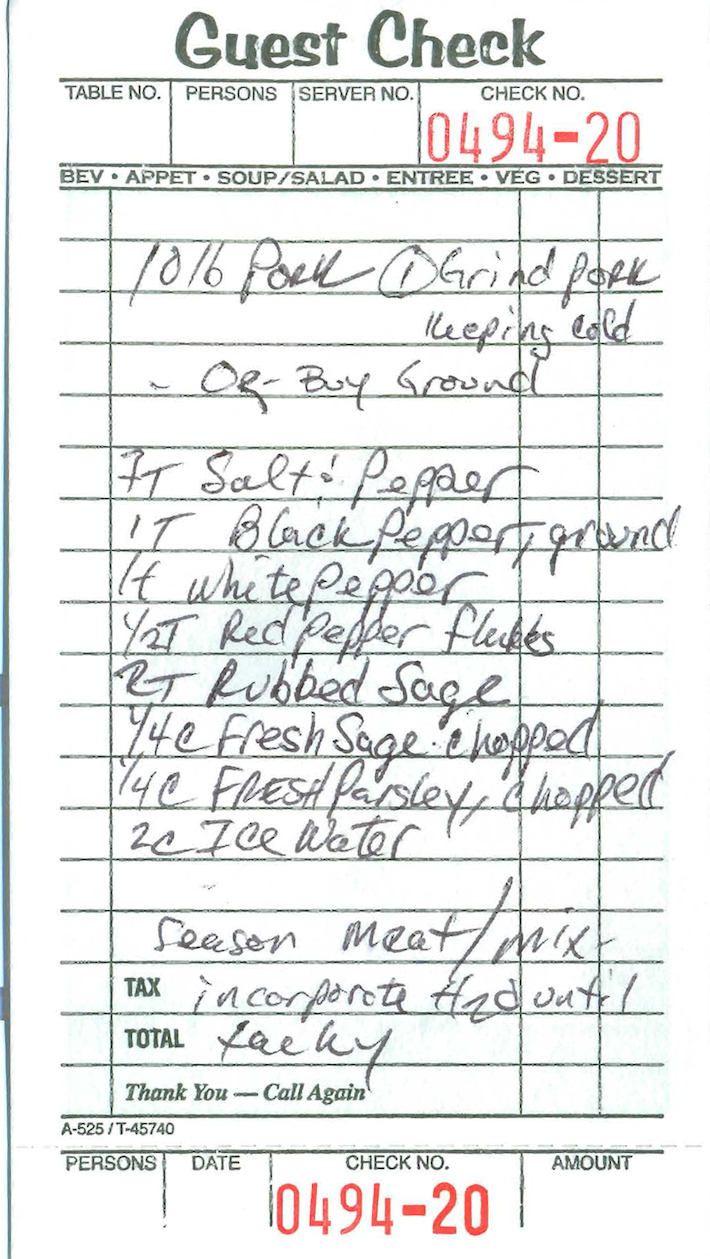 Guest Check
TABLE NO. PERSONS SERVER NO. CHECK NO.
0494-20
BEV • APPET • SOUP/SALAD • ENTREE • VEG • DESSERT
10 lb Pork ① Grind pork
keeping cold
- OR - Buy Ground
7T Salt & Pepper
1T Black Pepper, ground
1t white pepper
1/2T Red Pepper flakes
2T Rubbed Sage
1/4c Fresh Sage chopped
1/4c FRESH Parsley, chopped
2c Ice Water
Season Meat/mix-
TAX incorporate H2O until
TOTAL tacky
Thank You — Call Again
A-525 / T-45740
PERSONS DATE CHECK NO. AMOUNT
0494-20